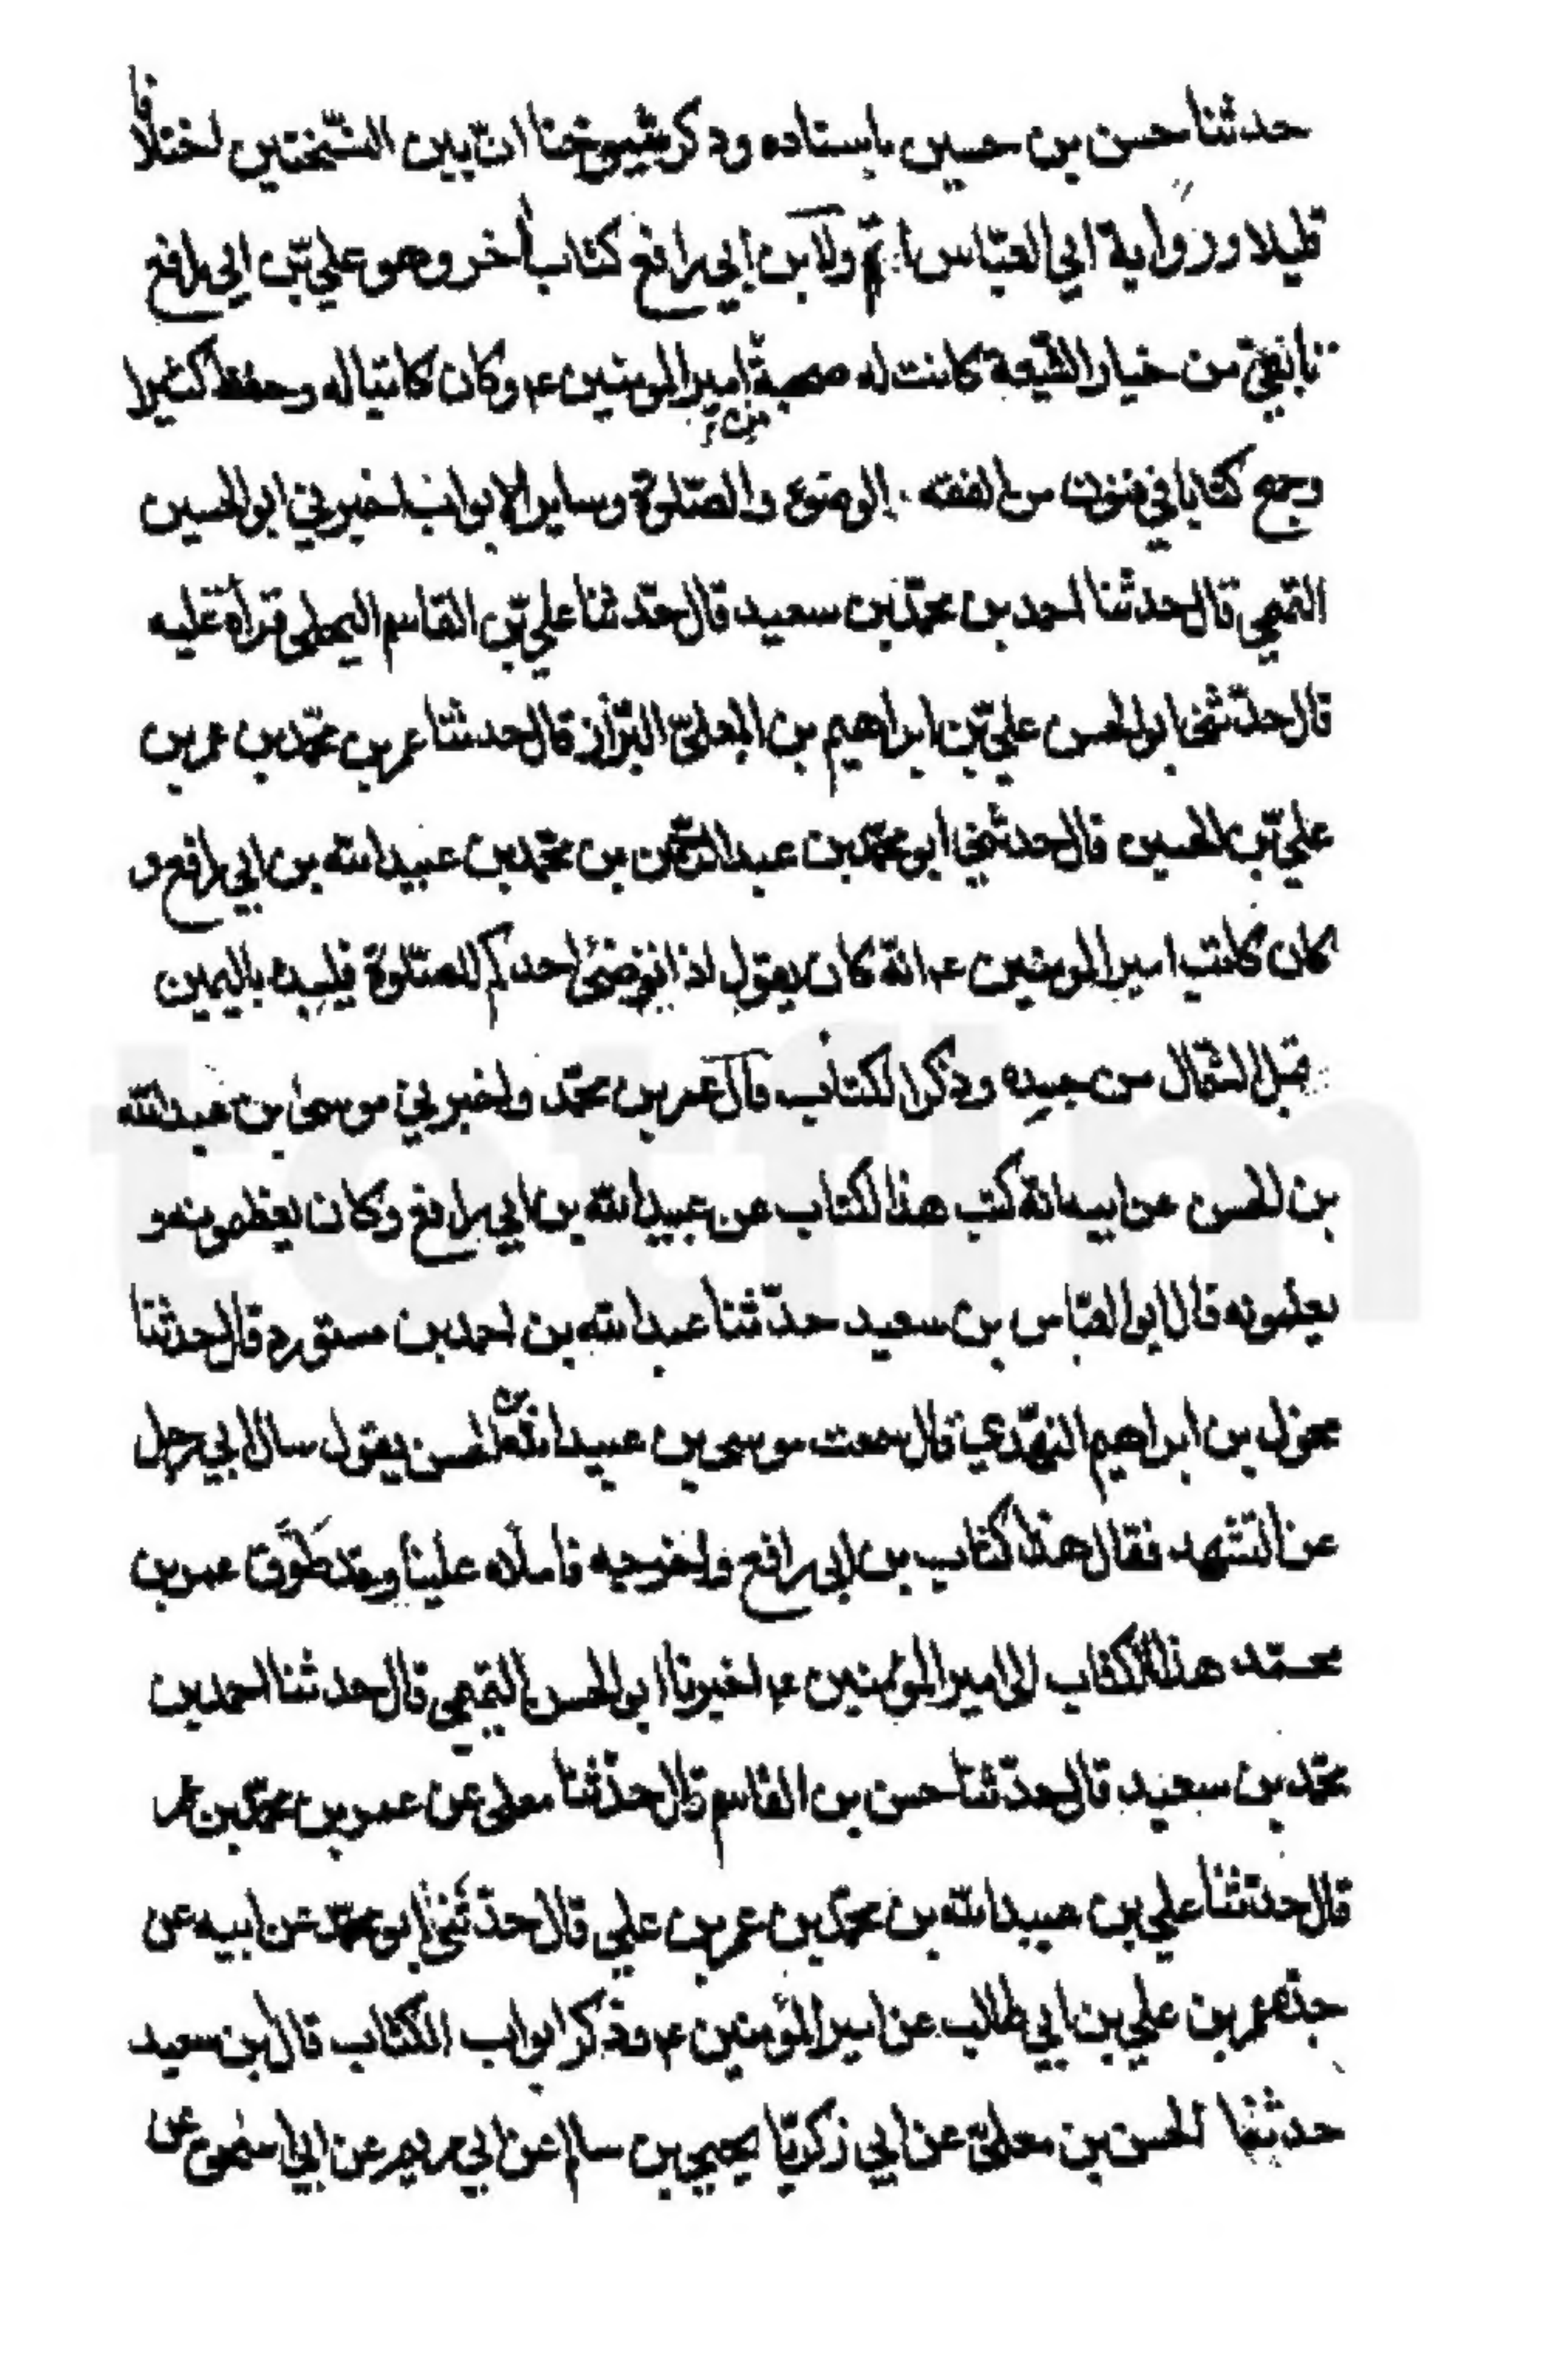 حدثنا حسن بن حسين باسناده وذكر شيوخنا ان بين النسختين اختلافا
قليلا ورواية ابي العباس اتم ولابن ابي رافع كتاب اخر وهو علي بن ابي رافع
تابعي من خيار الشيعة كانت له صحبة من امير المومنين ع م وكان كاتبا له وحفظ كثيرا
وجمع كتابا في فنون من الفقه الوضوء والصلوة وساير الابواب اخبرني ابو الحسين
التميمي قال حدثنا احمد بن محمد بن سعيد قال حدثنا علي بن القاسم البجلي قراة عليه
قال حدثني ابو الحسن علي بن ابراهيم بن المعلى البزاز قال حدثنا عمر بن محمد بن عمر بن
علي بن الحسين قال حدثني ابو محمد بن عبد الرحمن بن محمد بن عبيد الله بن ابي رافع و
كان كاتب امير المومنين ع م انه كان يقول اذا توضئ احدكم للصلوة فليبدء باليمين
قبل الشمال من جسده وذكر الكتاب قال عمر بن محمد واخبرني موسى بن عبد الله
بن الحسن عن ابيه انه كتب هذا الكتاب عن عبيد الله بن ابي رافع وكان يعظمونه و
يعلمونه قال ابو العباس بن سعيد حدثنا عبد الله بن احمد بن مستورد قال حدثنا
مخول بن ابراهيم النهدي قال سمعت موسى بن عبد الله بن الحسن يقول سال ابي رجل
عن التشهد فقال هذا كتاب بن ابي رافع واخرجه فاملاه علينا وقد طوق عمر بن
محمد هذا الكتاب الى امير المؤمنين ع م اخبرنا ابو الحسن التميمي قال حدثنا احمد بن
محمد بن سعيد قال حدثنا حسن بن القاسم قال حدثنا معلى عن عمر بن محمد بن عمر
قال حدثنا علي بن عبيد الله بن محمد بن عمر بن علي قال حدثني ابو محمد عن ابيه عن
جده عمر بن علي بن ابي طالب عن امير المؤمنين ع م وذكر ابواب الكتاب قال بن سعيد
حدثنا الحسن بن معلى عن ابي زكريا يحيى بن سالم عن ابي مريم عن ابي عن